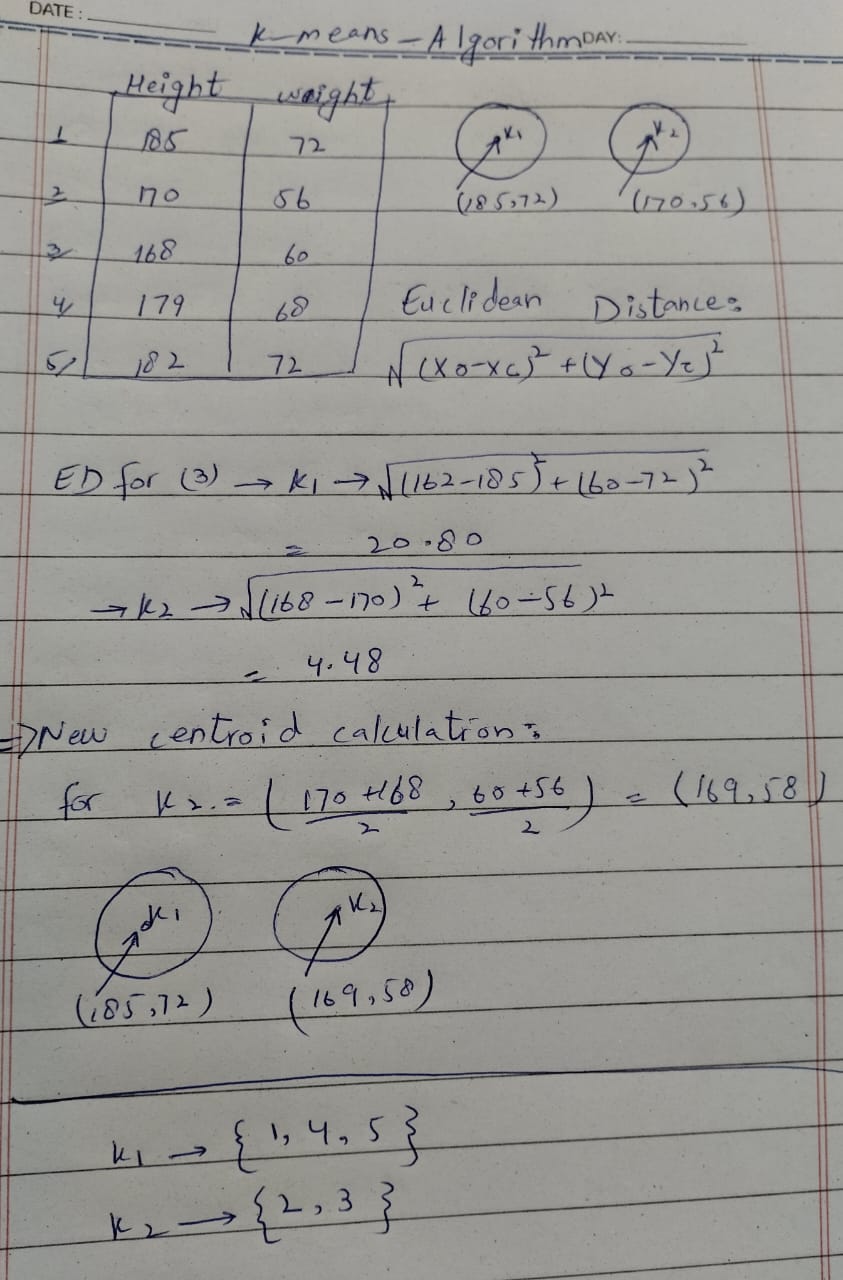 DATE:
K-means-Algorithm DAY:
Height weight
1 185 72
2 170 56
3 168 60
4 179 68
5 182 72
K1 K2
(185,72) (170,56)
Euclidean Distance:
√(Xo-Xc)² + (Yo-Yc)²
ED for (3) → K1 → √(162-185)² + (60-72)²
= 20.80
→ K2 → √(168-170)² + (60-56)²
= 4.48
⇒ New centroid calculation:
for K2. = (170+168/2, 60+56/2) = (169,58)
K1 K2
(185,72) (169,58)
K1 → {1, 4, 5}
K2 → {2, 3}